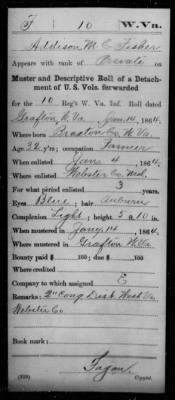 F | 10 | W. Va.
Addison M. C. Fisher
Appears with rank of Private on
Muster and Descriptive Roll of a Detach-
ment of U. S. Vols. forwarded
for the 10 Reg't W. Va. Inf. Roll dated
Grafton W. Va. Jan 14, 1864.
Where born Braxton Co. W. Va.
Age 32 y'rs; occupation Farmer
When enlisted Jan 4, 1864.
Where enlisted Webster Co.
For what period enlisted 3 years.
Eyes Blue; hair Auburn
Complexion Light; height 5 ft. 10 in.
When mustered in Jany 14, 1864.
Where mustered in Grafton W. Va.
Bounty paid $ 100; due $ 100
Where credited
Company to which assigned E
Remarks: 2" Cong Dist West Va.
Webster Co
Book mark:
Fagan
(339) Copyist.